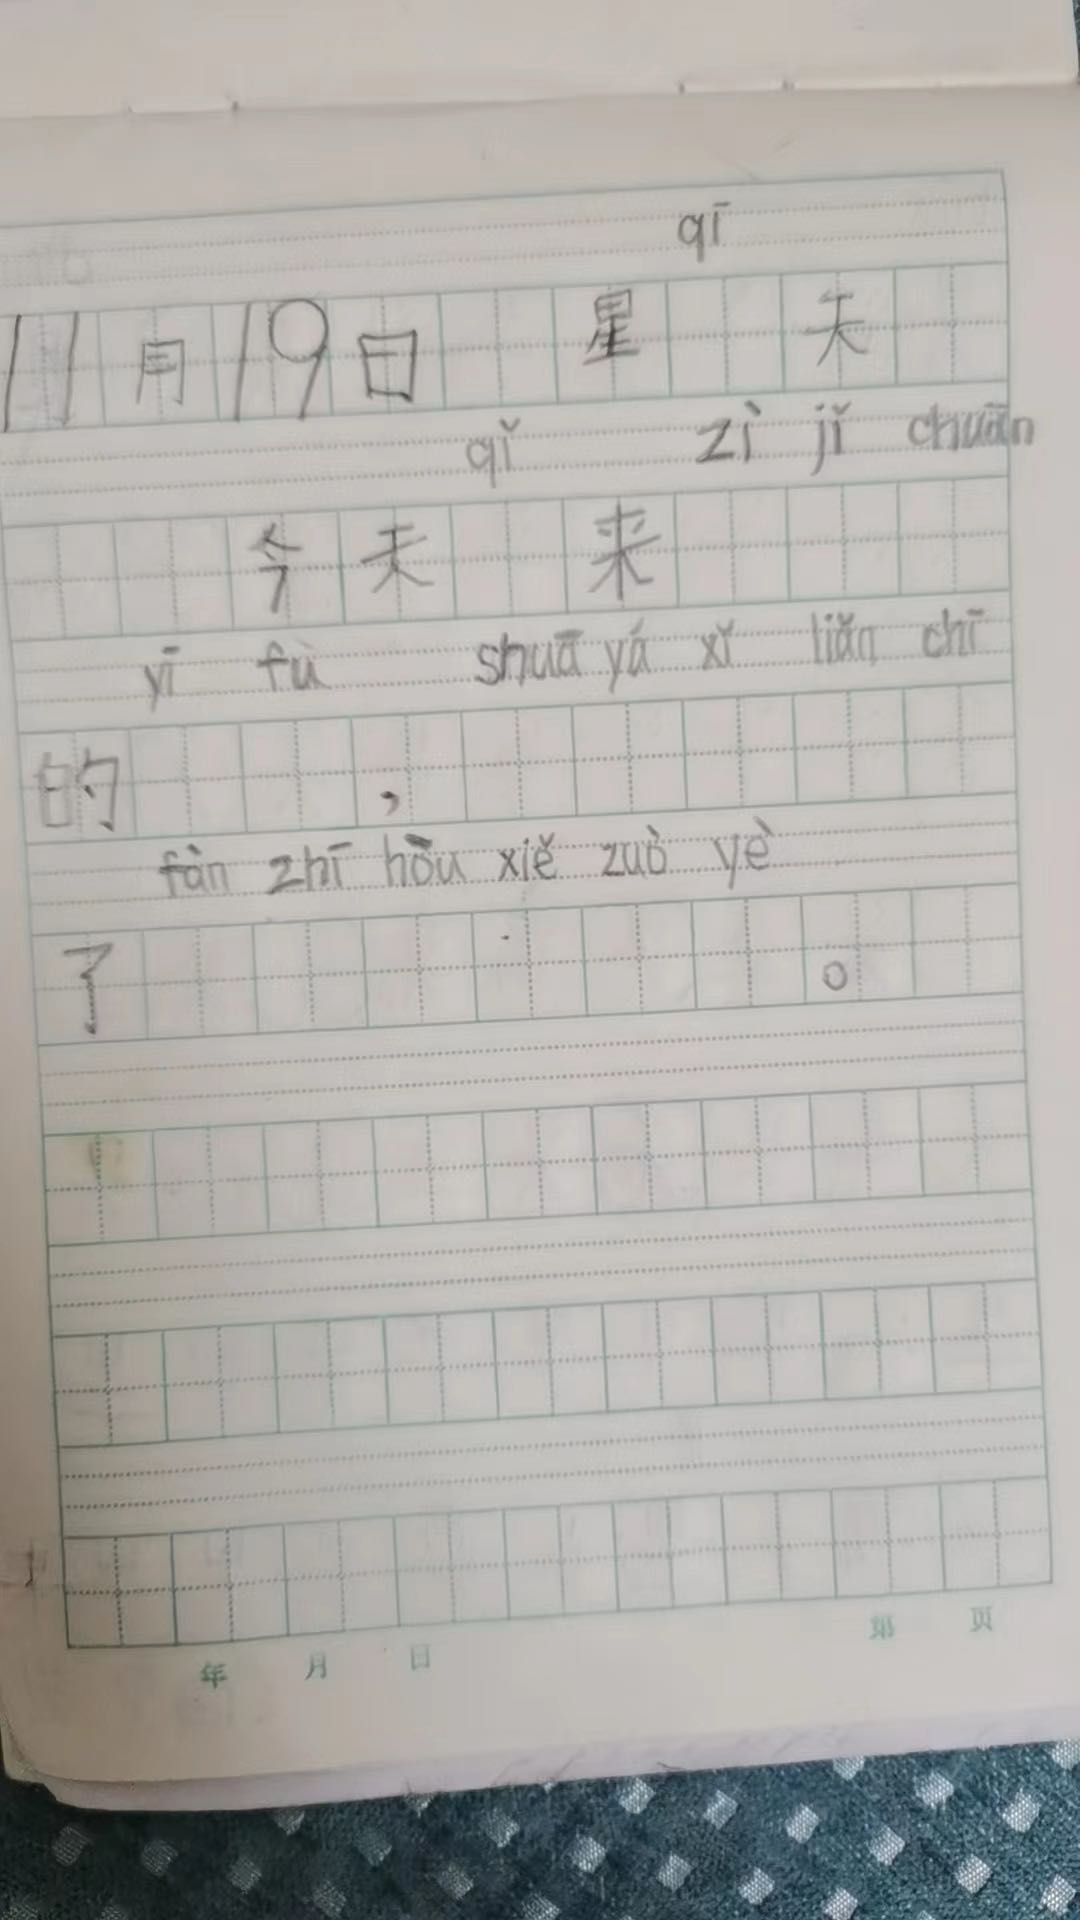 qī
11月19日 星 天
qǐ zì jǐ chuān
今天 来
yī fu shuā yá xǐ liǎn chī
的 ，
fàn zhī hòu xiě zuò yè
了 。
年 月 日 第 页